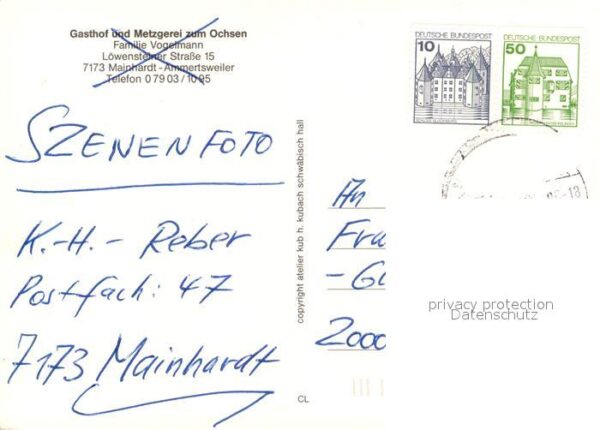 Gasthof und Metzgerei zum Ochsen
Familie Vogelmann
Löwensteiner Straße 15
7173 Mainhardt-Ammertsweiler
Telefon 0 79 03 / 10 95
SZENENFOTO
K.-H.- Reber
Postfach: 47
7173 Mainhardt
copyright atelier kub h. kubach schwäbisch hall
CL
10 DEUTSCHE BUNDESPOST
50 DEUTSCHE BUNDESPOST
An
Fra
2000
privacy protection
Datenschutz